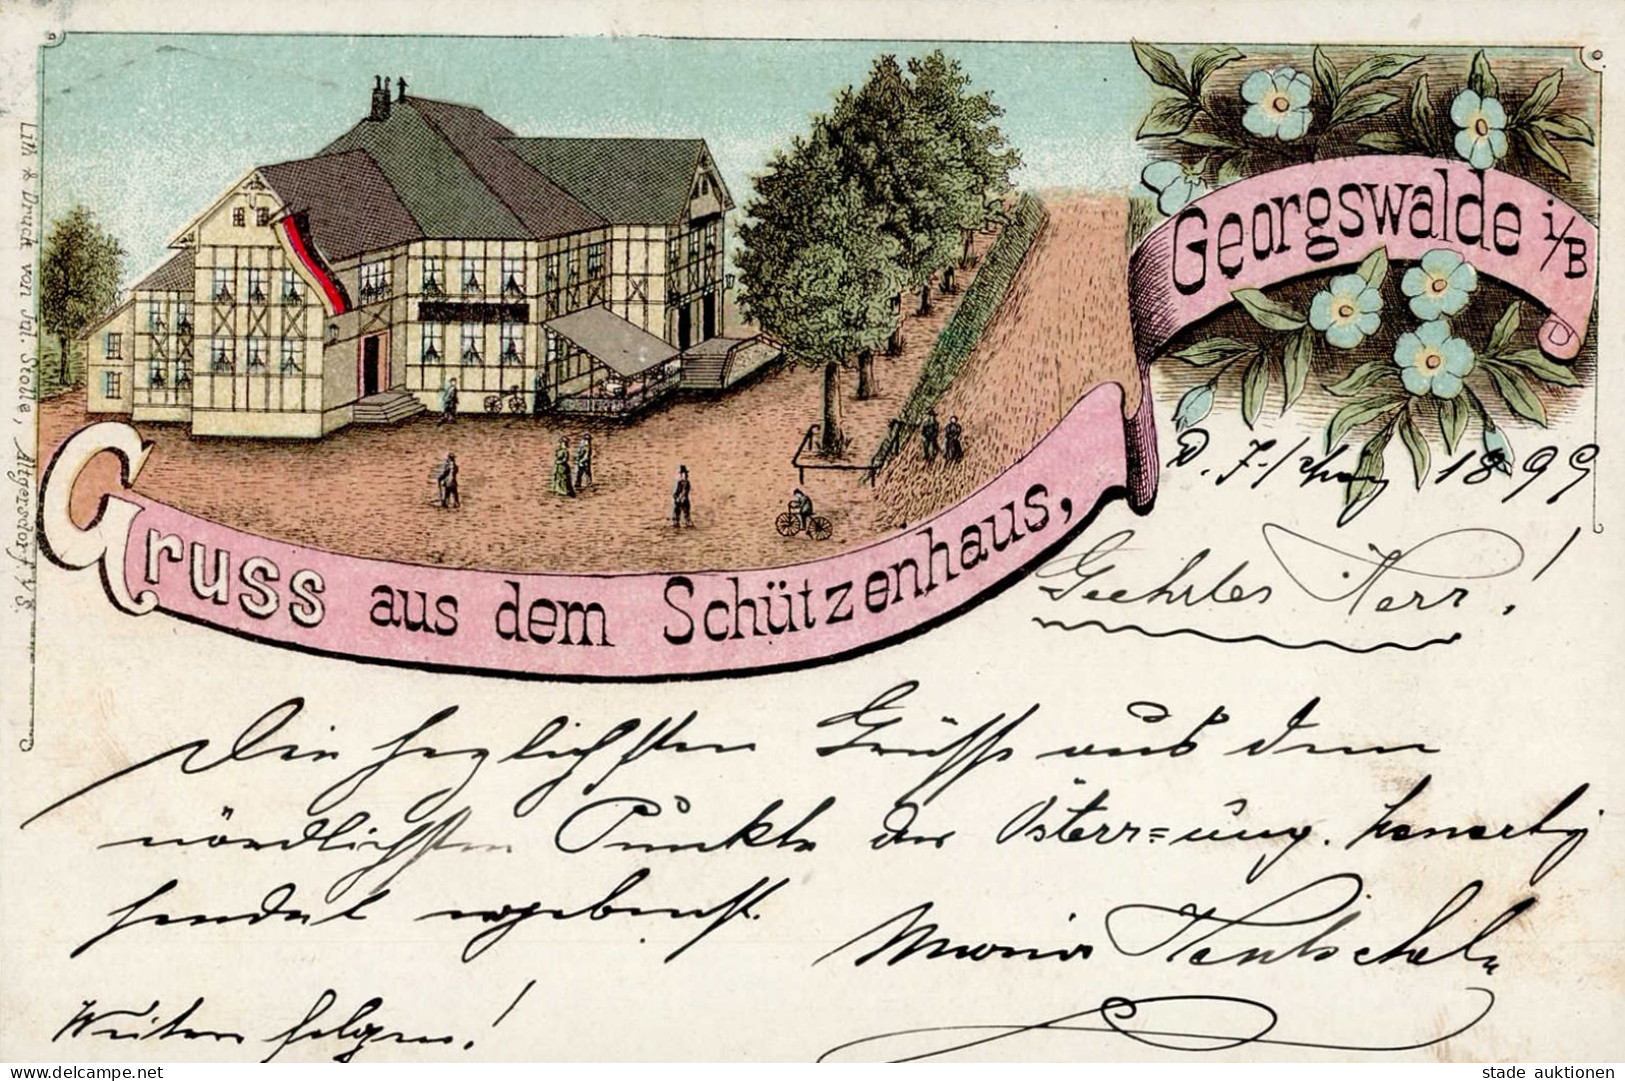 Georgswalde i/B
Gruss aus dem Schützenhaus,
Lith & Druck von Jul. Stolle, Altgersdorf i/S.
D. 7./ 1899
Geehrter Herr!
Die herzlichsten Grüsse aus dem
nördlichsten Punkte der Österr=ung.
sendet ergebenst
Maria Hentschel
Weitere folgen!
delcampe.net
stade auktionen